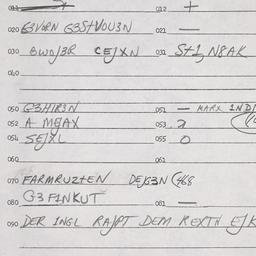 012 +
020 G3VORN G3StVOU3N 021 —
030 OWD/3R CE/XN 031 St1, N8AK
040
050 G3HIR3N 051 — MARX IND
052 A MEAX 053
054 SE/XL 055 O
060 061
070 FARMRUZtEN DE/G3N (468
080 G3 F1NKUT 081 —
090 DER INGL RA/PT DEM REXTH E/K